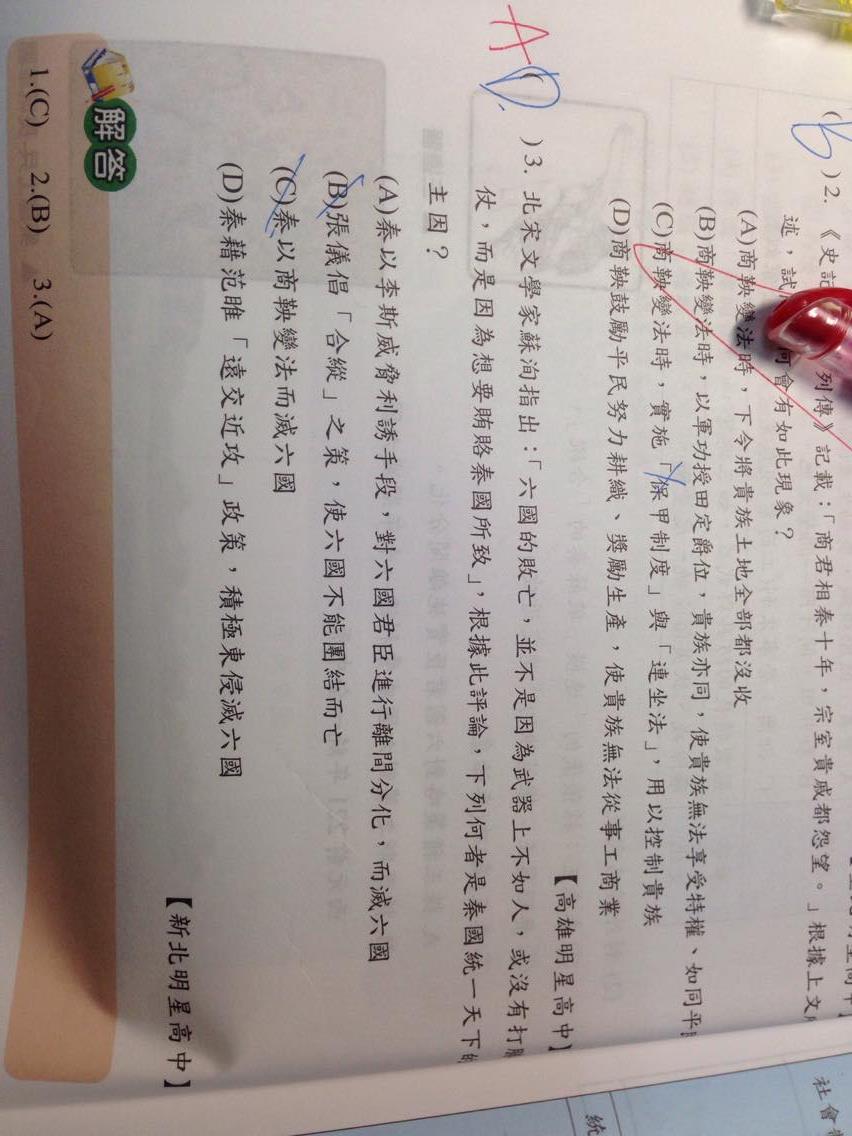 (B)2. 《史記 列傳》記載：「商君相秦十年，宗室貴戚都怨望。」根據上文
述，試 何會有如此現象？
(A)商鞅變法時，下令將貴族土地全部都沒收
(B)商鞅變法時，以軍功授田定爵位，貴族亦同，使貴族無法享受特權、如同平
(C)商鞅變法時，實施「保甲制度」與「連坐法」，用以控制貴族
(D)商鞅鼓勵平民努力耕織、獎勵生產，使貴族無法從事工商業
【高雄明星高中】
A
(D)3. 北宋文學家蘇洵指出：「六國的敗亡，並不是因為武器上不如人，或沒有打勝
仗，而是因為想要賄賂秦國所致」，根據此評論，下列何者是秦國統一天下的
主因？
(A)秦以李斯威脅利誘手段，對六國君臣進行離間分化，而滅六國
(B)張儀倡「合縱」之策，使六國不能團結而亡
(C)秦以商鞅變法而滅六國
(D)秦藉范睢「遠交近攻」政策，積極東侵滅六國
【新北明星高中】
解答
1.(C) 2.(B) 3.(A)
社會
統